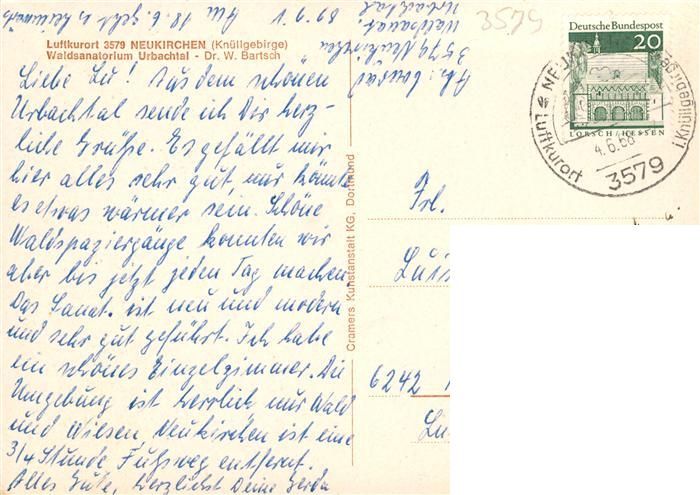 1.6.68 Am 18.6. geht es heimwärts
Abs: Conrad
3579 Neukirchen
Waldsanat.
Urbachtal
3579
Luftkurort 3579 NEUKIRCHEN (Knüllgebirge)
Waldsanatorium Urbachtal - Dr. W. Bartsch
Liebe Lu! Aus dem schönen
Urbachtal sende ich Dir herz-
liche Grüße. Es gefällt mir
hier alles sehr gut, nur könnte
es etwas wärmer sein. Schöne
Waldspaziergänge konnten wir
aber bis jetzt jeden Tag machen.
Das Sanat. ist neu und modern
und sehr gut geführt. Ich habe
ein schönes Einzelzimmer. Die
Umgebung ist herrlich nur Wald
und Wiesen, Neukirchen ist eine
3/4 Stunde Fußweg entfernt.
Alles Gute, herzlichst Deine Gerda
Cramers Kunstanstalt KG, Dortmund
Deutsche Bundespost
20
LORSCH/HESSEN
Luftkurort NEU
i. Knüllgebirge
4.6.68
3579
Frl.
Luis
6242